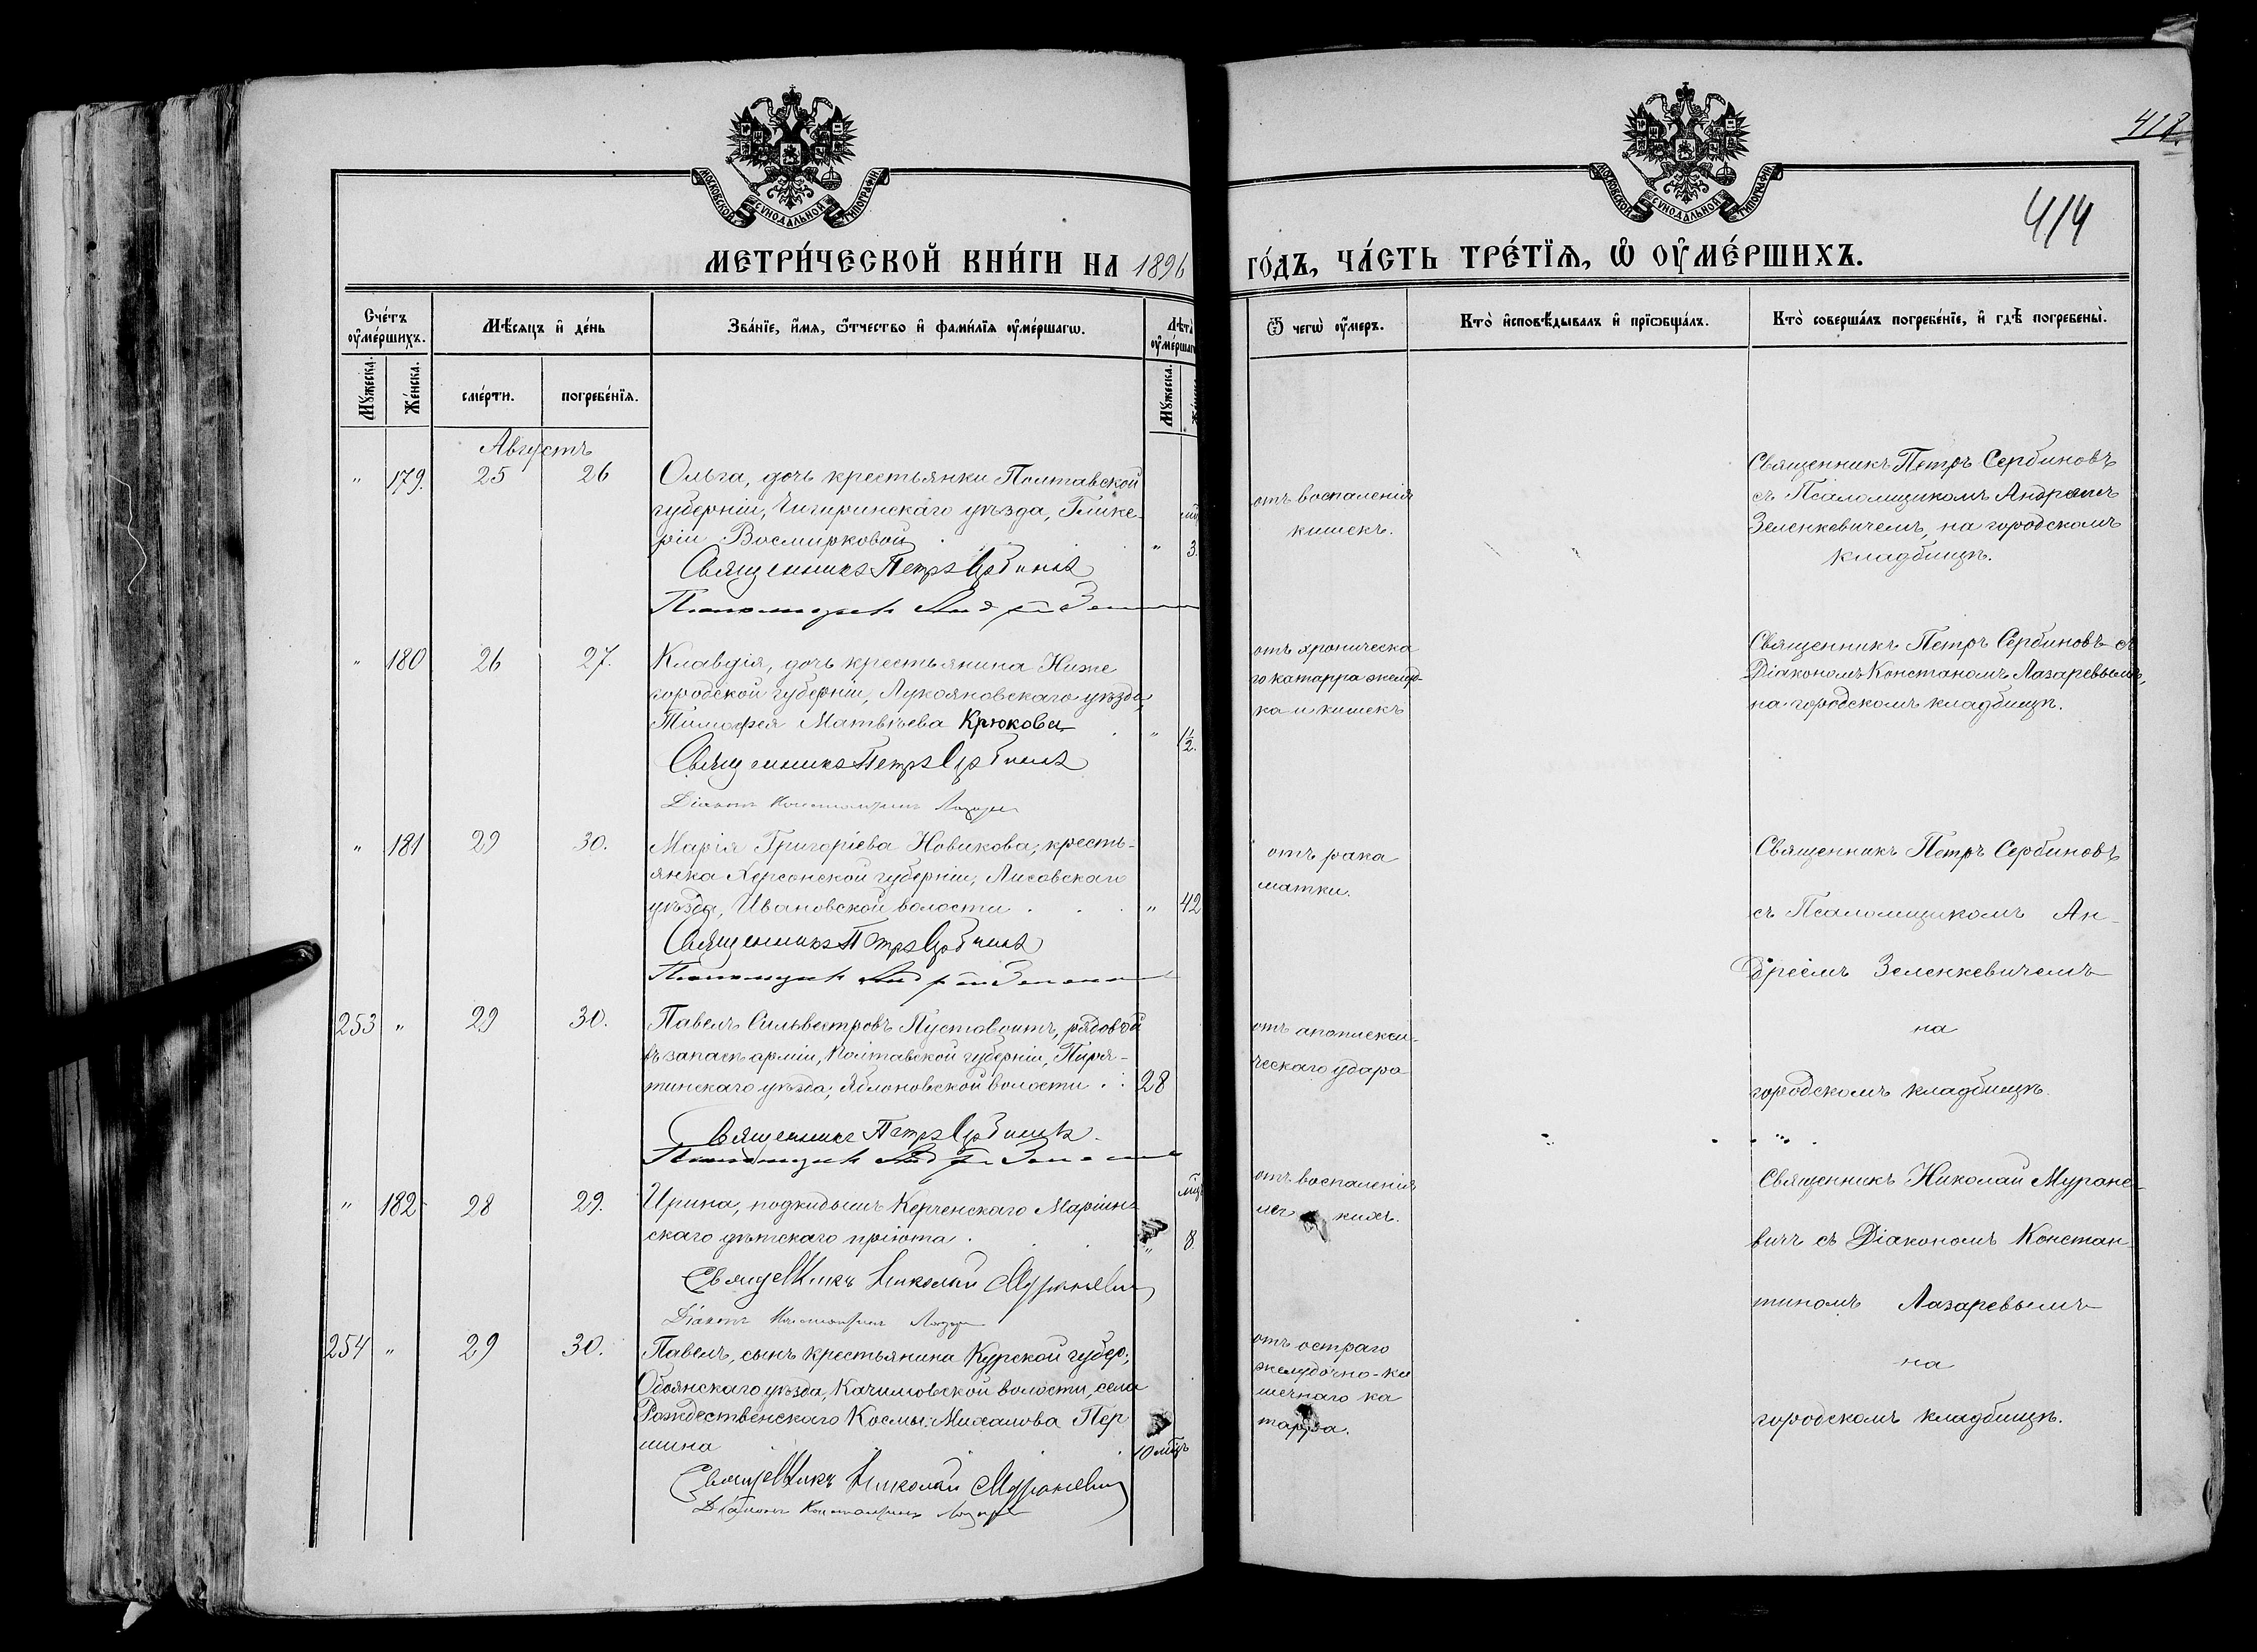 418.
414
МОСКОВСКОЙ СѴНОДАЛЬНОЙ ТИПОГРАФІИ
МОСКОВСКОЙ СѴНОДАЛЬНОЙ ТИПОГРАФІИ
МЕТРИ́ЧЕСКОЙ КНИ́ГИ НА 1896 ГО́ДЪ, ЧА́СТЬ ТРЕ́ТІѦ, Ѡ ОУ҆МЕ́РШИХЪ.
Сче́тъ оу҆ме́ршихъ.
Мѣ́сяцъ и҆ де́нь
Зва́нїе, и҆́мя, ѻ҆́тчество и҆ фами́лїя оу҆ме́ршагѡ.
Лѣта̀ оу҆ме́ршаг
Ѿ чегѡ̀ оу҆́меръ.
Кто̀ и҆сповѣ́дывалъ и҆ прїѡбща́лъ.
Кто̀ соверша́лъ погребе́нїе, и҆ гдѣ̀ погребены̀.
Мꙋ́жеска.
Же́нска.
сме́рти.
погребе́нїя.
Мꙋ́жеска.
Августъ
" 179. 25 26
Ольга, дочь крестьянки Полтавской
губерніи, Чигиринскаго уѣзда, Глике-
ріи Восмирковой
" 3.
Священникъ Петръ Сербиновъ
Псаломщикъ Андрей
отъ воспаленія
кишекъ.
Священникъ Петръ Сербиновъ
съ Псаломщикомъ Андреемъ
Зеленкевичемъ, на городскомъ
кладбищѣ.
" 180 26 27.
Клавдія, дочь крестьянина Ниже
городской губерніи, Лукояновскаго уѣзда,
Тимофея Матвѣева Крюкова
" 1½.
Священникъ Петръ Сербиновъ
Діаконъ Константинъ Лазаревъ
отъ хроническа
го катарра желуд-
ка и кишекъ
Священникъ Петръ Сербиновъ съ
Діакономъ Констаномъ Лазаревымъ,
на городскомъ кладбищѣ.
" 181 29 30.
Марія Григоріева Новикова, кресть-
янка Херсонской губерніи, Лисовскаго
уѣзда, Ивановской волости
" 42
Священникъ Петръ Сербиновъ
Псаломщикъ Андрей
отъ рака
матки.
Священникъ Петръ Сербиновъ
съ Псаломщикомъ Ан-
дреемъ Зеленкевичемъ
на
городскомъ кладбищѣ.
253 " 29 30.
Павелъ Сильвестровъ Пустовоитъ, рядовой
въ запасѣ арміи, Полтавской губерніи, Пиря-
тинскаго уѣзда, Яблоновской волости
28
Священникъ Петръ Сербиновъ
Псаломщикъ Андрей
отъ апоплекси-
ческаго удара
" 182 28 29.
Ирина, подкидышъ Керченскаго Маріин-
скаго дѣтскаго пріюта
" 8. мѣц
Священникъ Николай Мураневичъ
Діаконъ Константинъ Лазаревъ
отъ воспаленія
лег кихъ.
Священникъ Николай Муране-
вичъ съ Діакономъ Констан-
тиномъ Лазаревымъ
на
городскомъ кладбищѣ.
254 " 29 30.
Павелъ, сынъ крестьянина Курской губер.,
Обоянскаго уѣзда, Качимовской волости, села
Рождественскаго Космы Михаилова Пер
шина
10 мѣцъ
Священникъ Николай Мураневичъ
Діаконъ Константинъ Лазаревъ
отъ остраго
желудочно-ки
шечнаго ка
тарра.